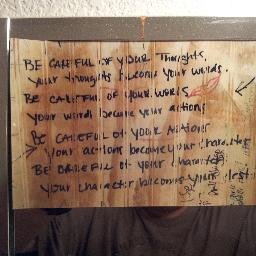 BE CAREFUL OF YOUR Thoughts,
Your thoughts become your words.
BE CAREFUL OF YOUR WORDS
Your words become your actions
BE CAREFUL OF YOUR ACTIONS
Your actions become your character
BE CAREFUL of your character
Your character becomes your